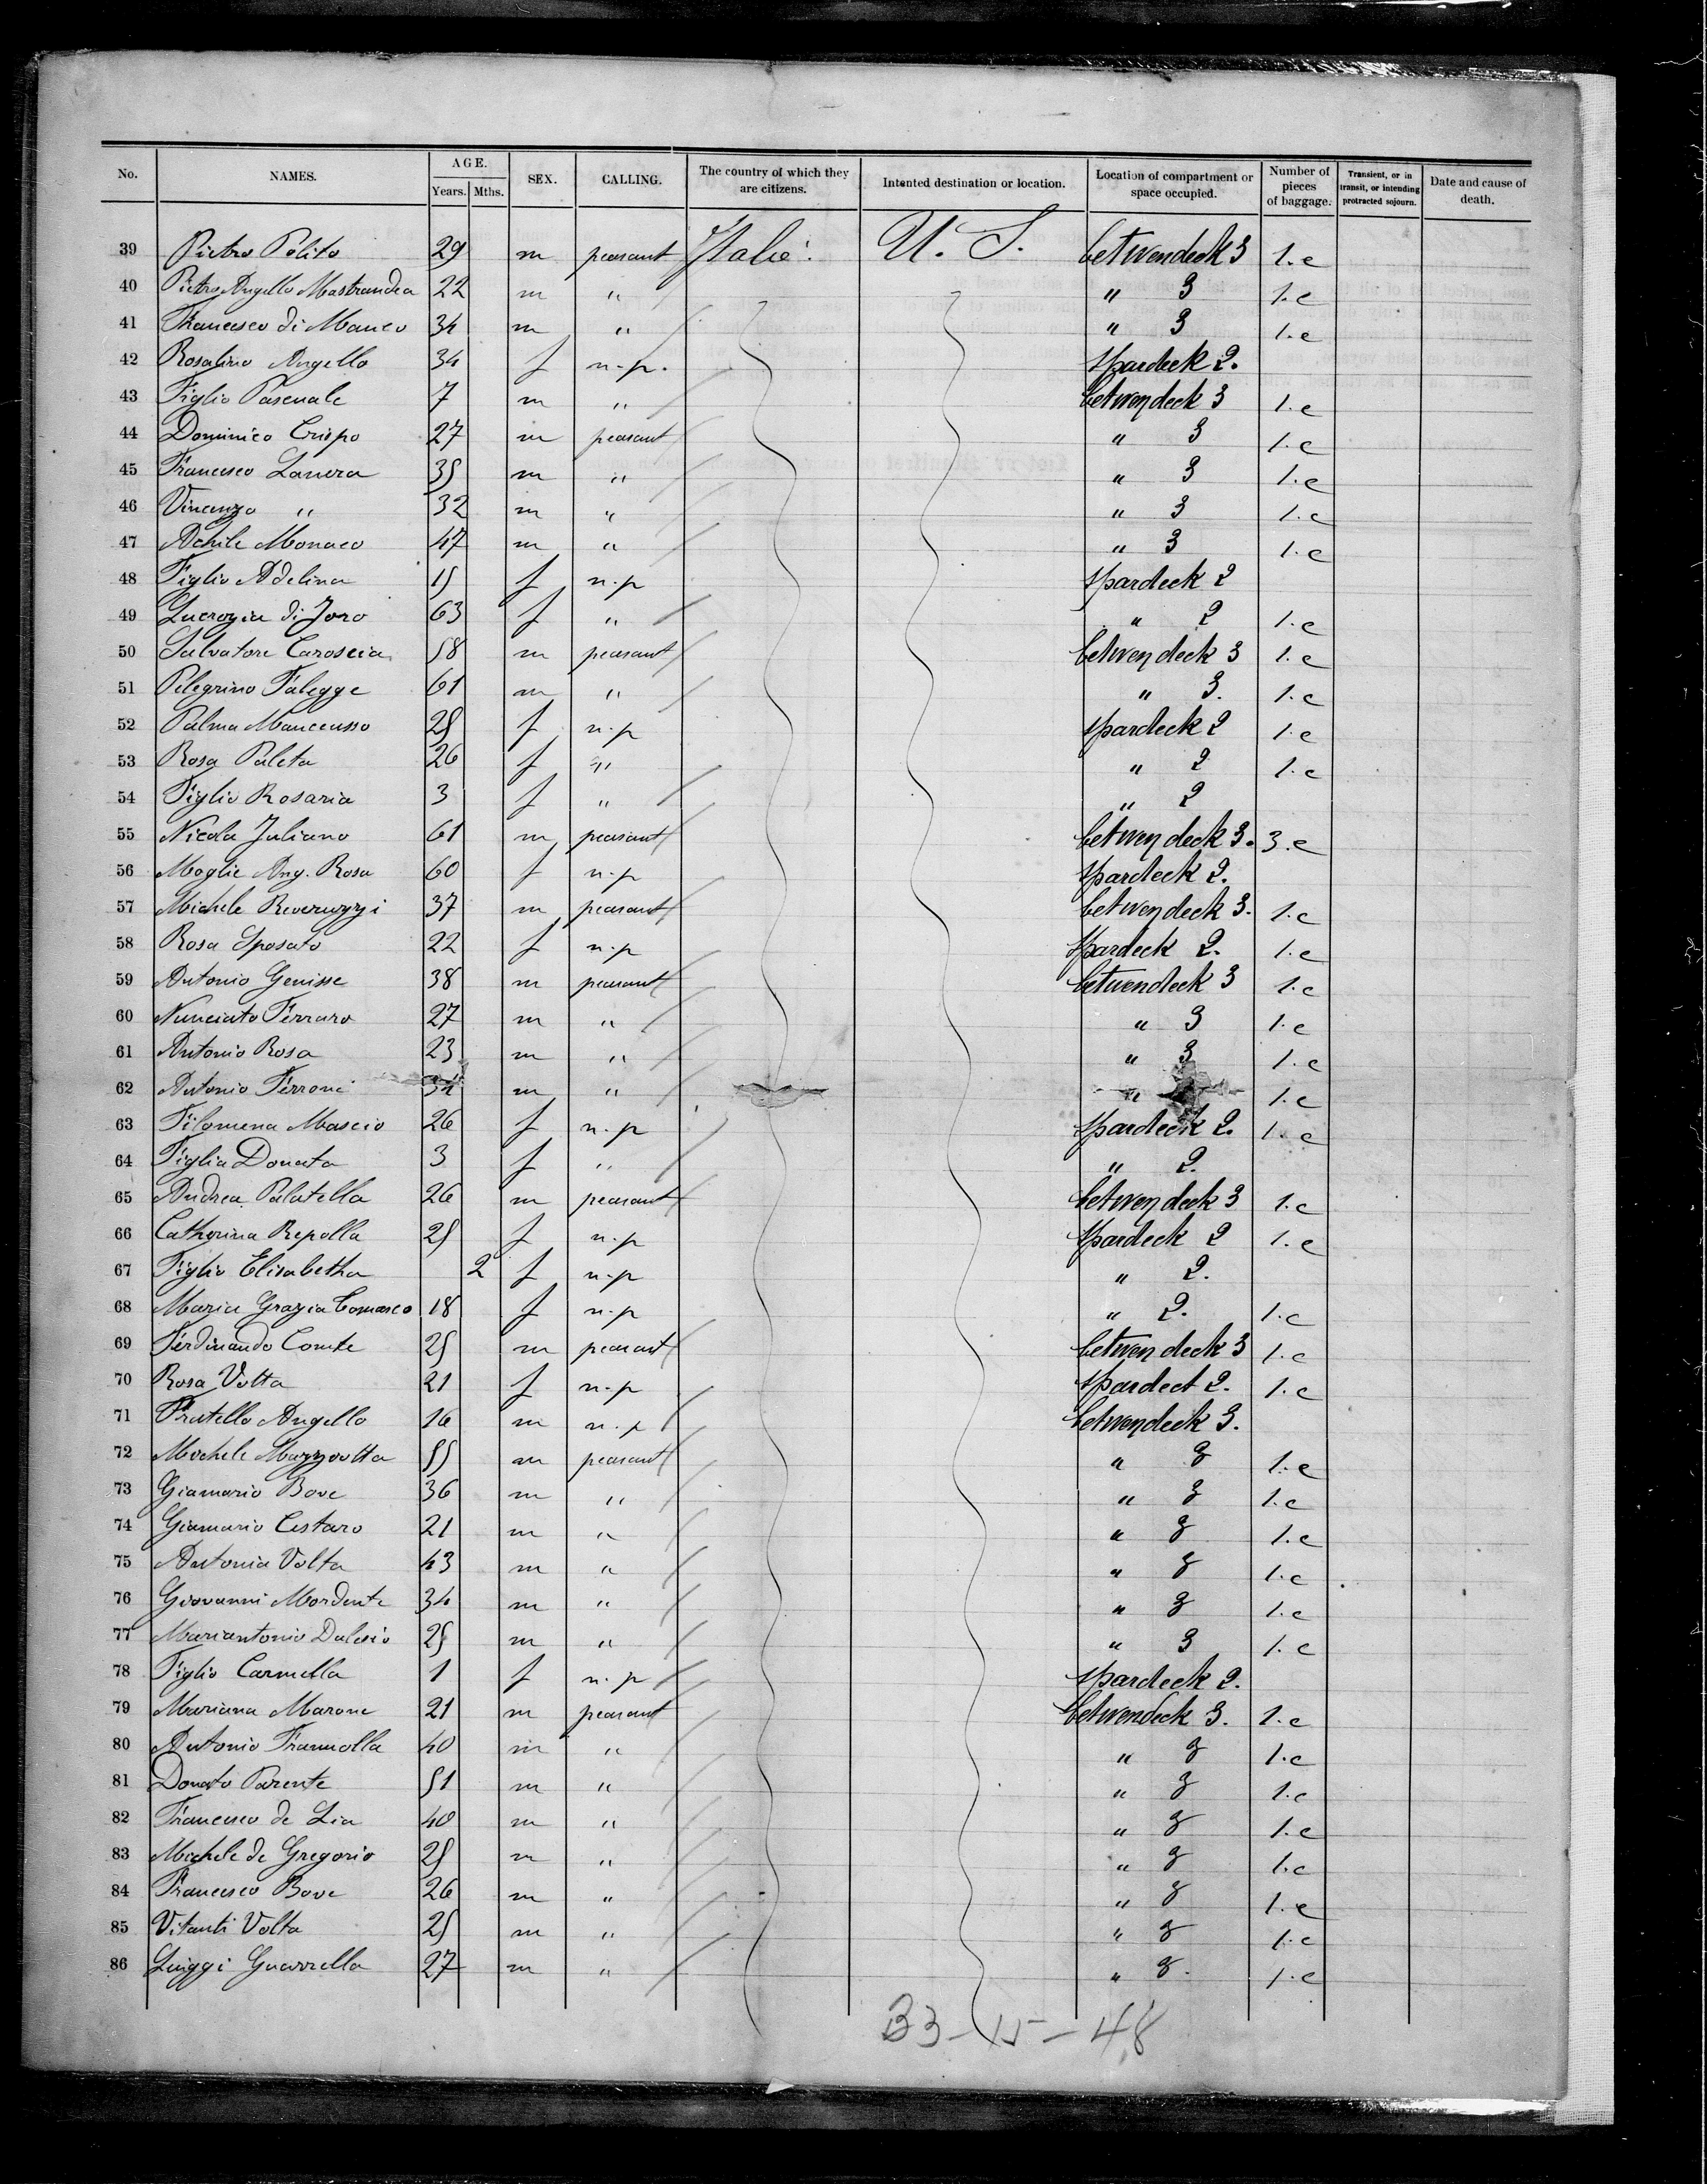 No. NAMES. AGE. Years. Mths. SEX. CALLING. The country of which they are citizens. Intented destination or location. Location of compartment or space occupied. Number of pieces of baggage. Transient, or in transit, or intending protracted sojourn. Date and cause of death.
39 Pietro Polito 29 m peasant Italie. U. S. betwendeck 3 1.c
40 Pietro Angello Mastrandea 22 m " " 3 1.c
41 Francesco di Manco 34 m " " 3 1.c
42 Rosalino Angello 34 f n.p. spardeck 2.
43 Figlio Pascuale 7 m " betwendeck 3 1.c
44 Dominico Crispo 27 m peasant " 3 1.c
45 Francesco Lanera 35 m " " 3 1.c
46 Vincenzo " 32 m " " 3 1.c
47 Achile Monaco 47 m " " 3 1.c
48 Figlio Adelina 15 f n.p spardeck 2
49 Lucrozia di Joro 63 f " " 2 1.c
50 Salvatore Caroscia 58 m peasant betwendeck 3 1.c
51 Pelegrino Falegge 61 m " " 3. 1.c
52 Palma Mancusso 25 f n.p spardeck 2 1.c
53 Rosa Paleta 26 f " " 2 1.c
54 Figlio Rosaria 3 f " " 2
55 Nicola Juliano 61 m peasant betwendeck 3. 3.c
56 Moglie Ang. Rosa 60 f n.p spardeck 2.
57 Michele 37 m peasant betwendeck 3. 1.c
58 Rosa Sposato 22 f n.p spardeck 2. 1.c
59 Antonio Genisse 38 m peasant betwendeck 3 1.c
60 Nunciato Ferraro 27 m " " 3 1.c
61 Antonio Rosa 23 m " " 3 1.c
62 Antonio Ferroni 34 m " " 1.c
63 Filomena Mascio 26 f n.p spardeck 2. 1.c
64 Figlia Donata 3 f " " 2.
65 Andrea Palatella 26 m peasant betwendeck 3 1.c
66 Catherina Repolla 25 f n.p spardeck 2 1.c
67 Figlio Elisabetha 2 f n.p " 2.
68 Maria Grazia Comasco 18 f n.p " 2. 1.c
69 Ferdinando Comte 25 m peasant betwendeck 3 1.c
70 Rosa Volta 21 f n.p spardect 2. 1.c
71 Fratello Angello 16 m n.p betwendeck 3.
72 Michele Mazzvolta 55 m peasant " 3 1.c
73 Giamario Bove 36 m " " 3 1.c
74 Giamario Cestaro 21 m " " 3 1.c
75 Antonia Volta 43 m " " 3 1.c
76 Giovanni Mordente 34 m " " 3 1.c
77 Mariantonio Dalesio 25 m " " 3 1.c
78 Figlio Carmella 1 f n.p spardeck 2.
79 Mariana Marone 21 m peasant betwendeck 3. 1.c
80 Antonio Frannolla 40 m " " 3 1.c
81 Donato Parente 51 m " " 3 1.c
82 Francesco de Lia 40 m " " 3 1.c
83 Michele de Gregorio 25 m " " 3 1.c
84 Francesco Bove 26 m " " 3 1.c
85 Vitanti Volta 25 m " " 3 1.c
86 Luiggi Guarrella 27 m " " 3. 1.c
33-15-48